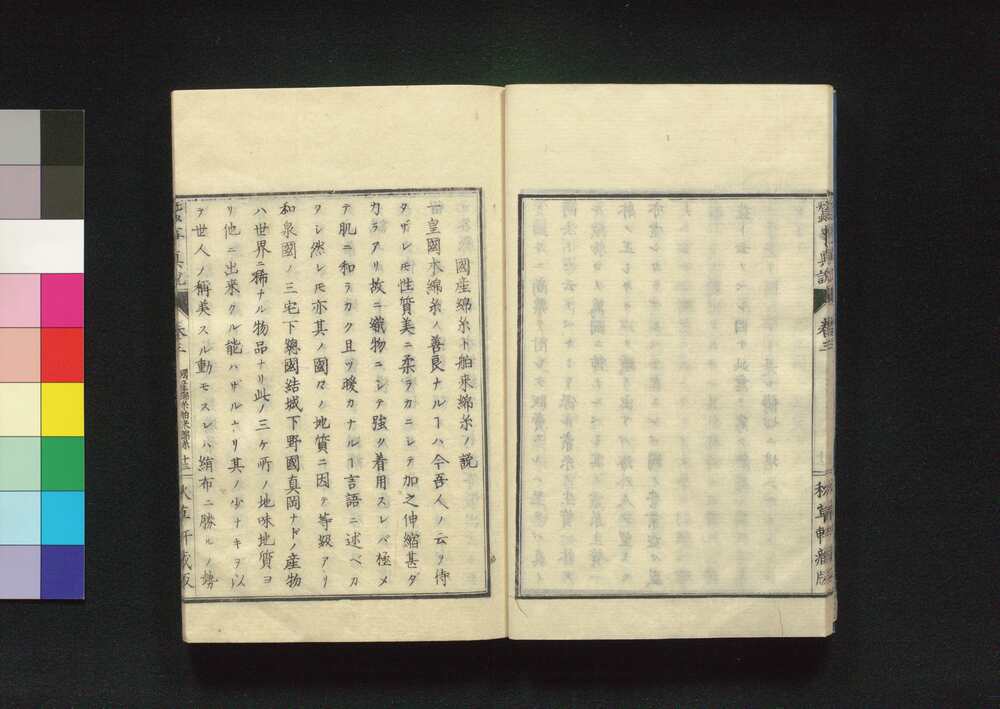 蠶事真説
巻三
秋草軒蔵版
國産綿糸ト舶来綿糸ノ説
皇國木綿糸ノ善良ナルヿハ今吾人ノ云ヲ待
タザレ𪜈性質美ニ柔ラカニシテ加之伸縮甚ダ
カラアリ故ニ織物ニシテ強ク着用スレバ極メ
テ肌ニ和ラカク且ツ暖カナルヿ言語ニ述ベカ
タシ然レ𪜈亦其ノ國々ノ地質ニ因テ等級アリ
和泉國ノ三宅下總國結城下野國真岡ナドノ産物
ハ世界ニ稀ナル物品ナリ此ノ三ケ所ノ地味地質ヨ
リ他ニ出来クル能ハザルナリ其ノ少ナキヲ以
テ世人ノ稱美スル動モスレバ絹布ニ勝ルノ勢
國産綿糸舶来綿糸 十三